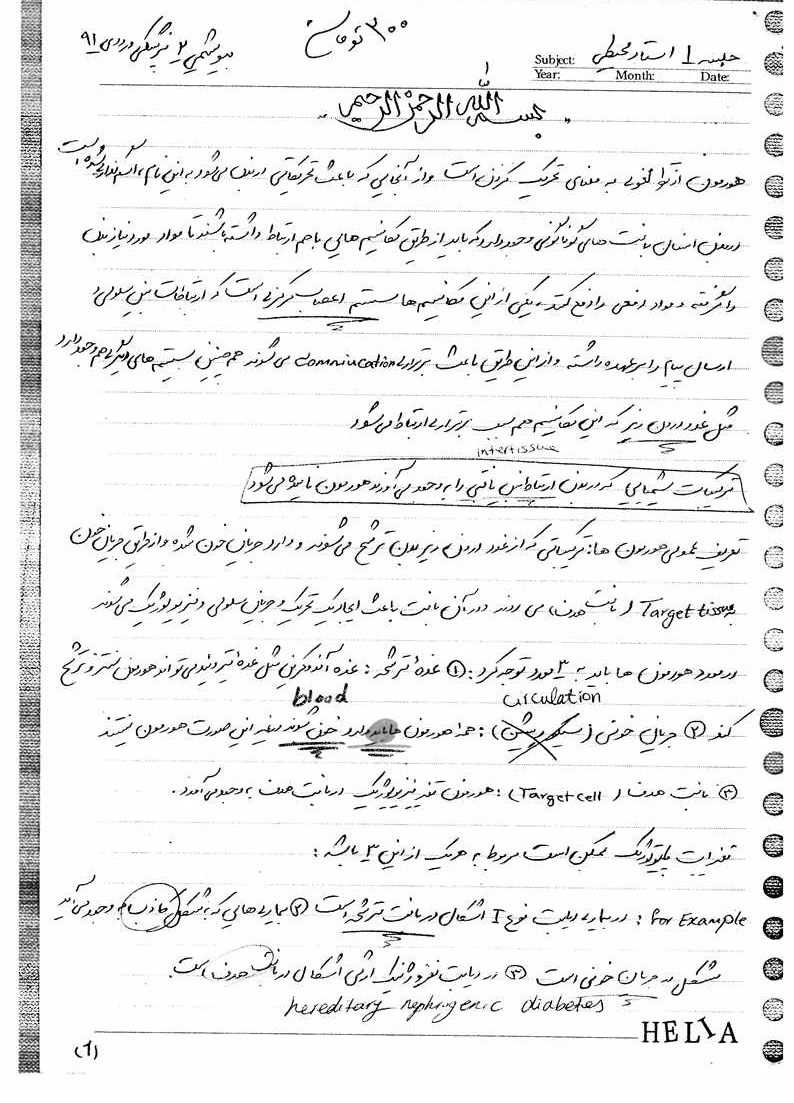 جلسه 1 استاد محیطی
بیوشیمی 2 پزشکی ورودی 91
300 تومان
Subject:
Year: Month: Date:
بسم الله الرحمن الرحیم
هورمون از نظر لغوی به معنای تحریک کردن است و از آنجایی که باعث تحریکاتی در بدن می شود به این نام، اسم گذاری شده است
در بدن انسان بافت های گوناگونی وجود دارد که باید از طریق مکانیسم هایی با هم ارتباط داشته باشند تا مواد مورد نیاز بدن
را گرفته و مواد دفعی را دفع کند، یکی از این مکانیسم ها سیستم اعصاب مرکزی است که ارتباطات بین سلولی و
ارسال پیام را بر عهده داشته و از این طریق باعث برقراری communication می شوند هم چنین سیستم های دیگری هم وجود دارد
مثل غدد درون ریز که این مکانیسم هم سبب برقراری ارتباط می شود
intertissue
ترکیبات شیمیایی که در بدن ارتباط بین بافتی را به وجود می آورند هورمون نامیده می شود
تعریف عمومی هورمون ها: ترکیباتی که از غدد درون ریز بدن ترشح می شوند و وارد جریان خون شده و از طریق جریان خون
Target tissue (بافت هدف) می روند و در آن بافت باعث ایجاد یک تحریک و جریان سلولی و فیزیولوژیک می شوند
در مورد هورمون ها باید به 3 مورد توجه کرد: ① غده مترشحه: غده آندوکرینی مثل غده تیروئید می تواند هورمون سنتز و ترشح
blood circulation
کند ② جریان خونی (): حتما هورمون ها باید وارد خون شوند در غیر این صورت هورمون نیستند
③ بافت هدف (Target cell): هورمون تغییر فیزیولوژیک در بافت هدف به وجود می آورد.
تغییرات پاتولوژیک ممکن است مربوط به هر یک از این 3 باشد:
For Example: در بیماری دیابت نوع I اشکال در بافت ترشحی است ② بیماری هایی که به شکل کاذب وجود می آید
مشکل در جریان خونی است ③ در دیابت نفروژنیک ارثی اشکال در بافت هدف است.
hereditary nephrogenic diabetes
HELIA
(1)